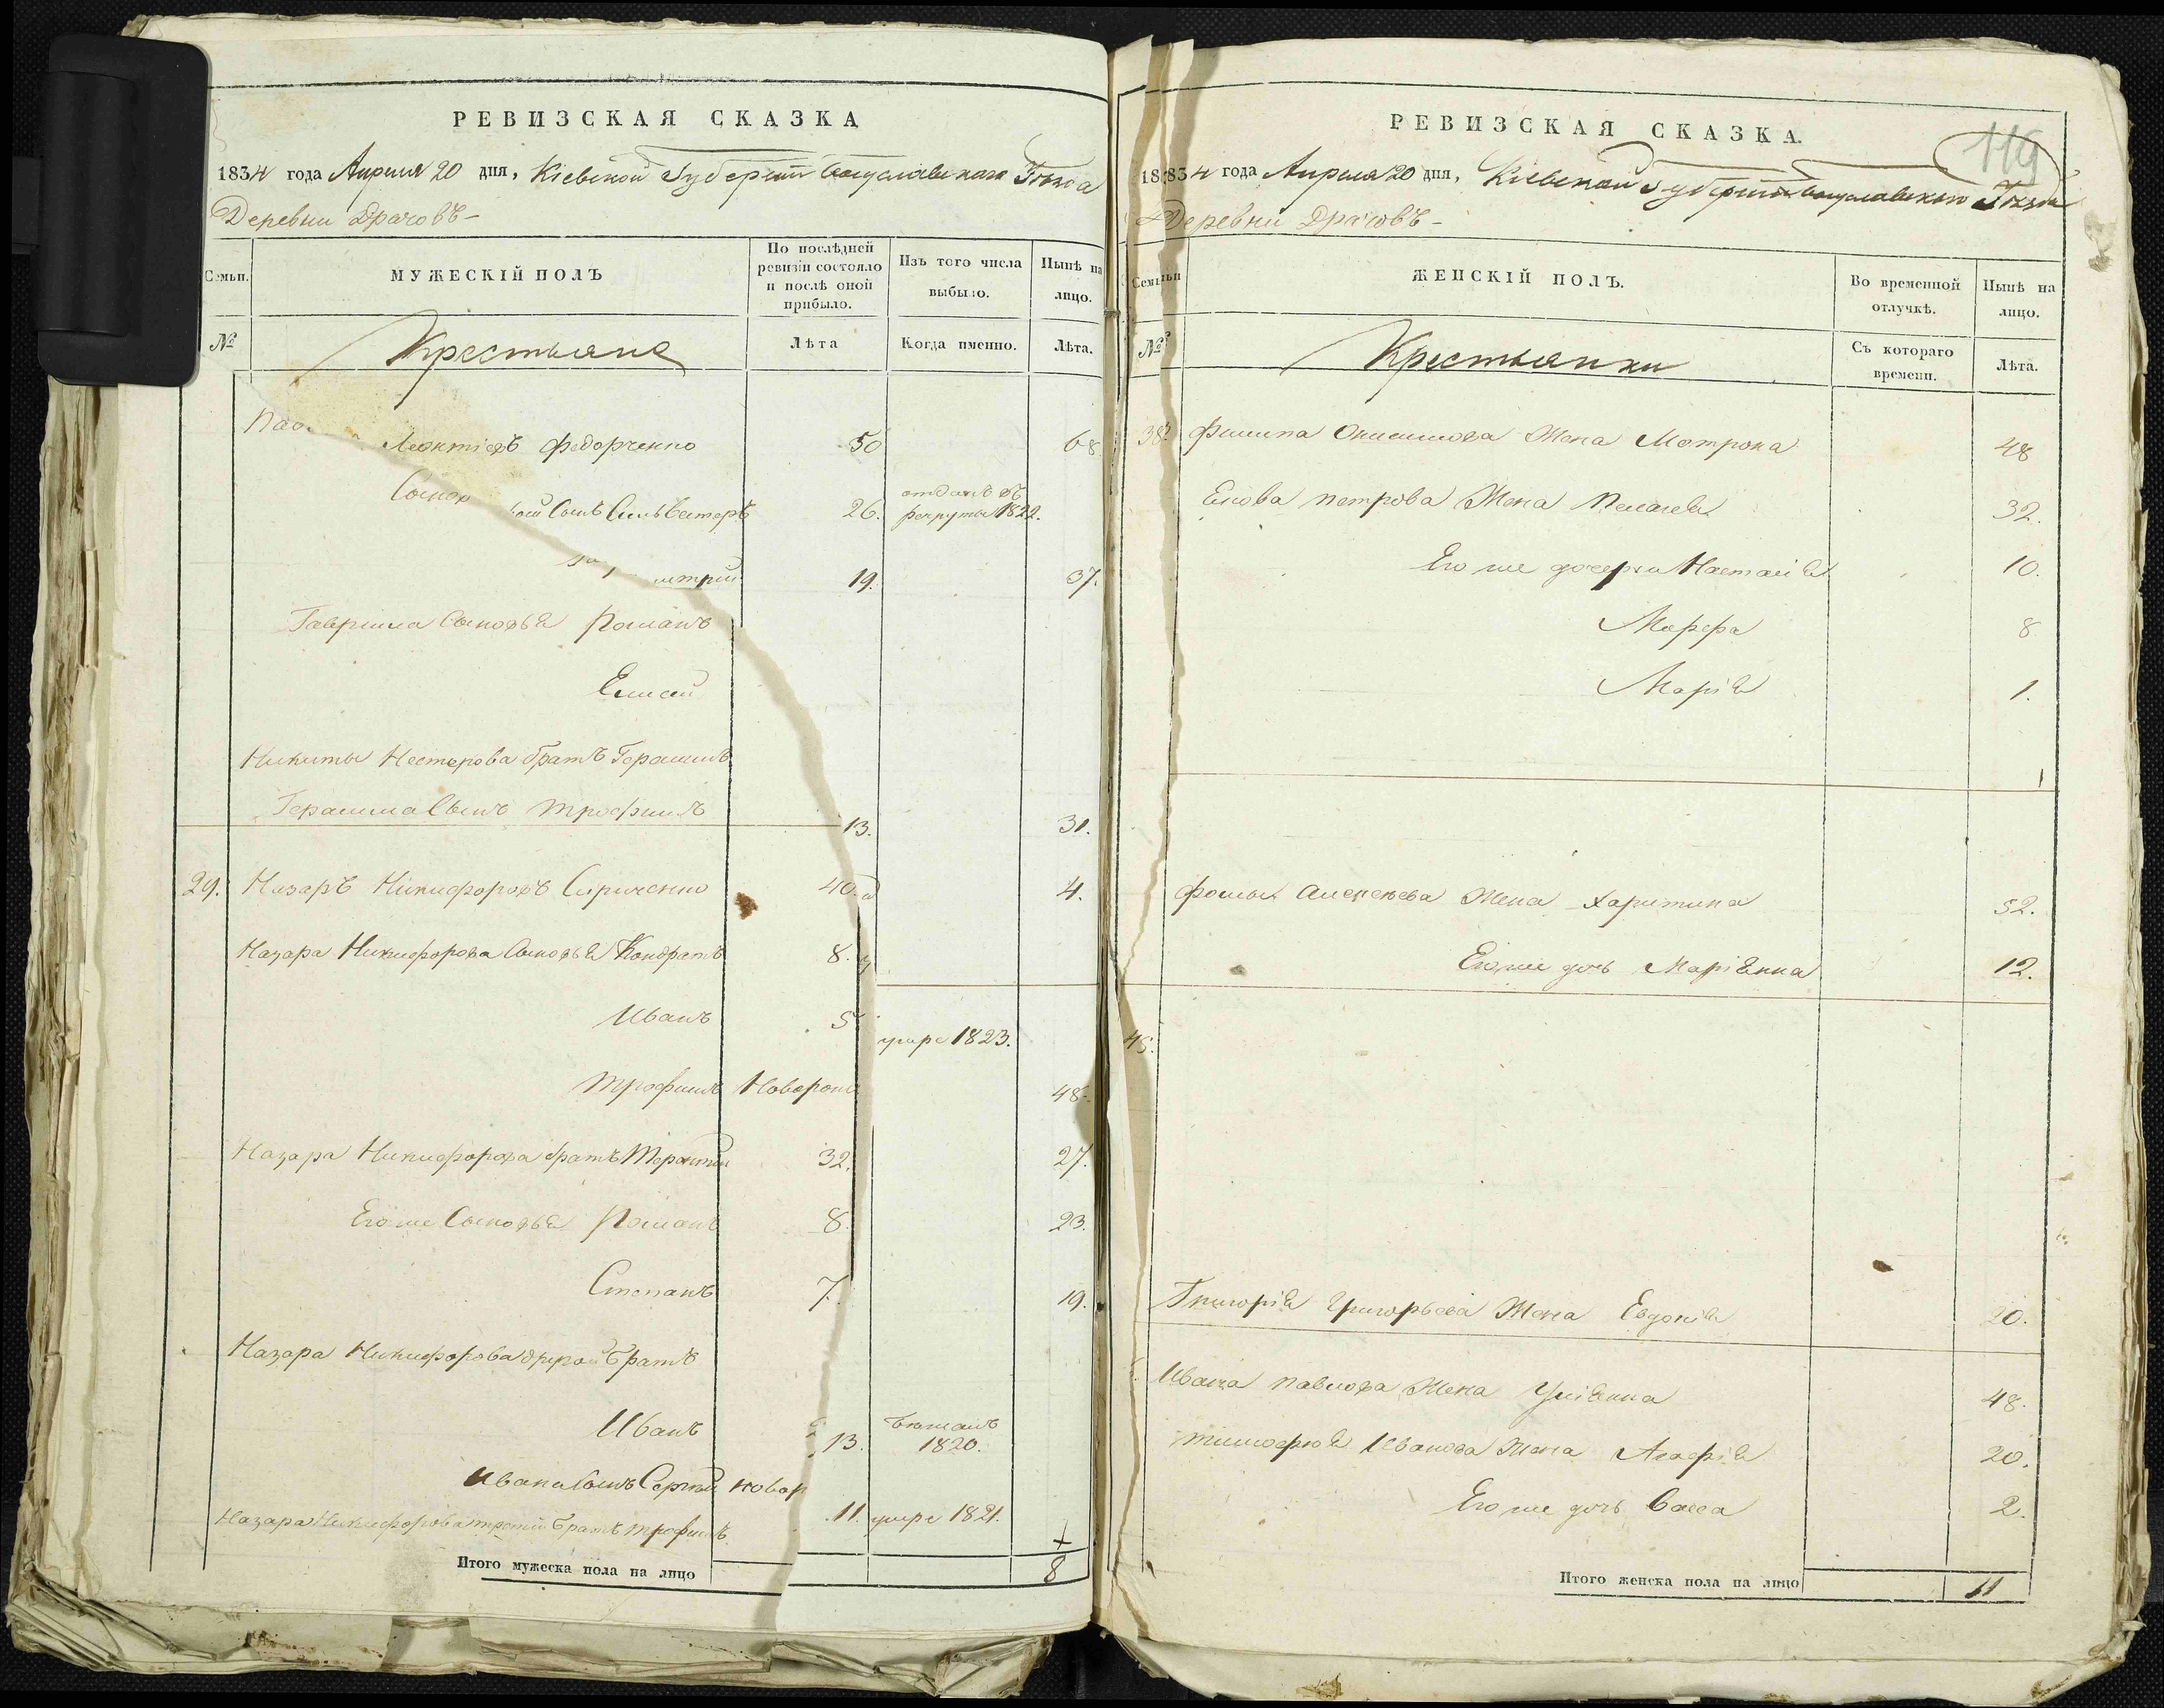 РЕВИЗСКАЯ СКАЗКА
1834 года Априля 20 дня, Кіевской Губерніи Богуславскаго Уѣзда
Деревни Драчовъ-
Семьи.
МУЖЕСКІЙ ПОЛЪ
По послѣдней ревизіи состояло и послѣ оной прибыло.
Изъ того числа выбыло.
Нынѣ на лицо.
№
Крестьяне
Лѣта
Когда именно.
Лѣта.
Леонтіевъ Федорченко 50 68
Сынъ Сильвестеръ 26. отданъ въ рекруты 1822.
19. 37.
Гаврила Сыновья Романъ
Елисей
Никиты Нестерова братъ Герасимъ
Герасима Сынъ Трофимъ 13. 31.
29. Назаръ Никифоровъ 40. 4.
Назара Никифорова Сыновья Кондратъ 8.
Иванъ 5 умре 1823.
Трофимъ Новорож 48.
Назара Никифорова братъ Терентій 32. 27.
Его же Сыновья Романъ 8. 23.
Степанъ 7. 19.
Назара Никифорова другой братъ
Иванъ 13. бежалъ 1820.
Ивана Сынъ Сергей новор
Назара Никифорова третій братъ Трофимъ 11. умре 1821.
Итого мужеска пола на лицо 8
РЕВИЗСКАЯ СКАЗКА.
1834 года Априля 20 дня, Кіевской Губерніи Богуславскаго Уѣзда
119
Деревни Драчовъ-
Семьи
ЖЕНСКІЙ ПОЛЪ.
Во временной отлучкѣ.
Нынѣ на лицо.
№
Крестьянки
Съ котораго времени.
Лѣта.
38. Филипа Онисимова Жена Матрона 48
Петрова Жена Пелагея 32.
Его же дочери Настасія 10.
Марфа 8
Марія 1.
Фомы Алексеева Жена Харитина 52.
Его же дочь Маріанна 12.
45.
Григорія Григорьева Жена Евдокія 20.
Ивана Павлова Жена Уліянна 48.
Тимофея Иванова Жена Агафія 20.
Его же дочь Васса 2.
Итого женска пола на лицо 11